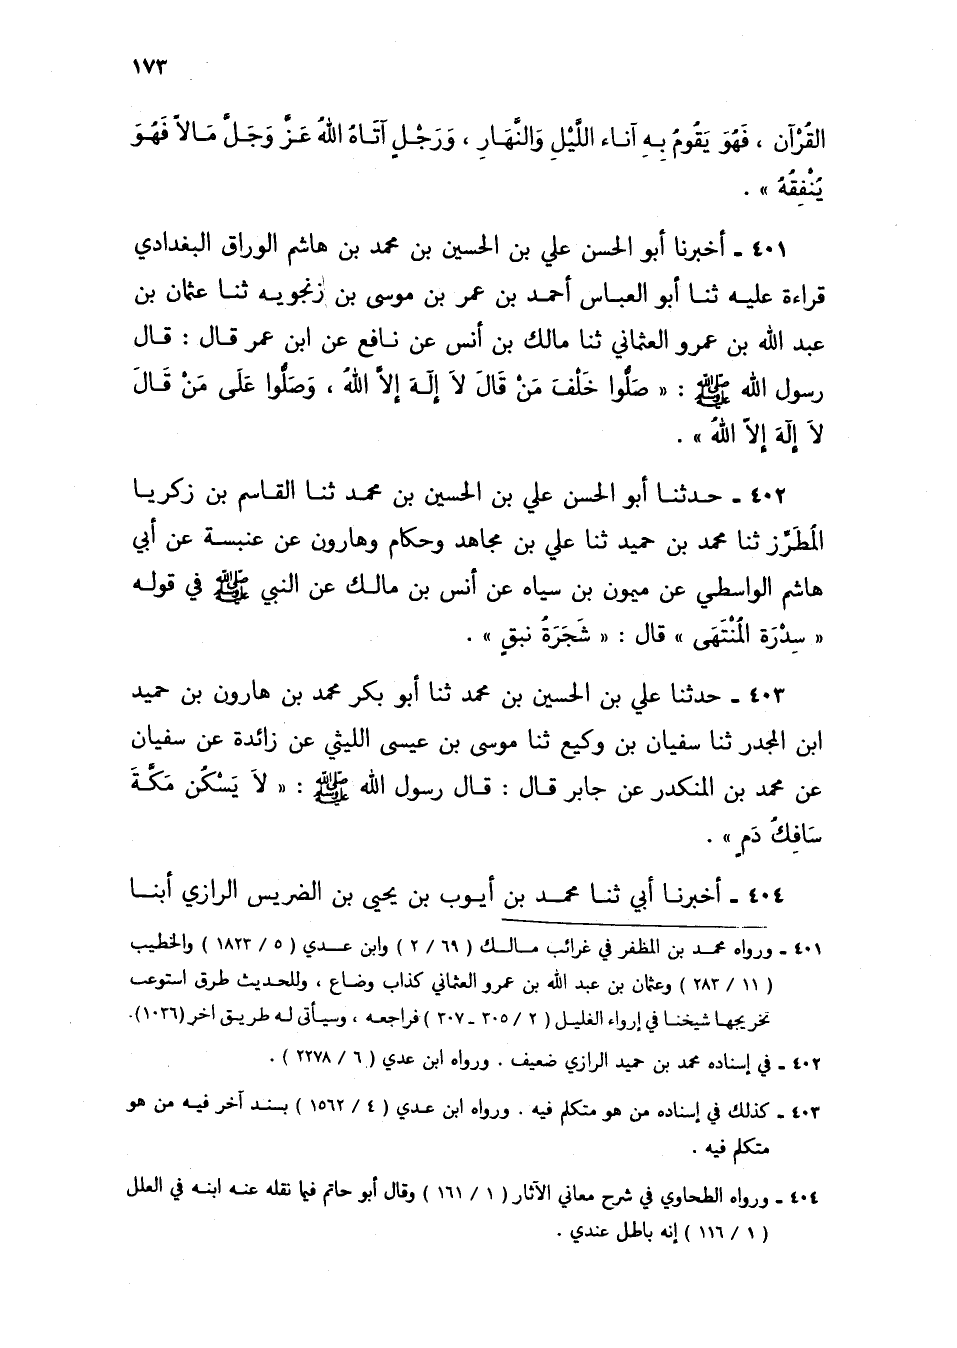 ١٧٣
القُرْآن ، فَهُوَ يَقُومُ بِهِ آناء اللَّيْلِ وَالنَّهَارِ ، وَرَجُلٍ آتَاهُ اللهُ عَزَّ وَجَلَّ مَالاً فَهُوَ
يُنْفِقُهُ » .
٤٠١ ـ أخبرنا أبو الحسن علي بن الحسين بن محمد بن هاشم الوراق البغدادي
قراءة عليه ثنا أبو العباس أحمد بن عمر بن موسى بن زنجويه ثنا عثمان بن
عبد الله بن عمرو العثماني ثنا مالك بن أنس عن نافع عن ابن عمر قال : قال
رسول الله ﷺ : « صَلُّوا خَلْفَ مَنْ قَالَ لاَ إِلَهَ إِلاَّ اللهُ ، وَصَلُّوا عَلَى مَنْ قَالَ
لاَ إِلَهَ إِلاَّ اللهُ » .
٤٠٢ ـ حدثنا أبو الحسن علي بن الحسين بن محمد ثنا القاسم بن زكريا
المُطَرِّز ثنا محمد بن حميد ثنا علي بن مجاهد وحكام وهارون عن عنبسة عن أبي
هاشم الواسطي عن ميمون بن سياه عن أنس بن مالك عن النبي ﷺ في قوله
« سِدْرَة المُنْتَهَى » قال : « شَجَرَةُ نبقٍ » .
٤٠٣ ـ حدثنا علي بن الحسين بن محمد ثنا أبو بكر محمد بن هارون بن حميد
ابن المجدر ثنا سفيان بن وكيع ثنا موسى بن عيسى الليثي عن زائدة عن سفيان
عن محمد بن المنكدر عن جابر قال : قال رسول الله ﷺ : « لاَ يَسْكُن مَكَّةَ
سَافِكُ دَمٍ » .
٤٠٤ ـ أخبرنا أبي ثنا محمد بن أيوب بن يحيى بن الضريس الرازي أبنا
٤٠١ ـ ورواه محمد بن المظفر في غرائب مالك ( ٦٩ / ٢ ) وابن عدي ( ٥ / ١٨٢٣ ) والخطيب
( ١١ / ٢٨٣ ) وعثمان بن عبد الله بن عمرو العثماني كذاب وضاع ، وللحديث طرق استوعب
تخريجها شيخنا في إرواء الغليل ( ٢ / ٣٠٥ ـ ٣٠٧ ) فراجعه ، وسيأتي له طريق اخر (١٠٣٦).
٤٠٢ ـ في إسناده محمد بن حميد الرازي ضعيف . ورواه ابن عدي ( ٦ / ٢٢٧٨ ) .
٤٠٣ ـ كذلك في إسناده من هو متكلم فيه . ورواه ابن عدي ( ٤ / ١٥٦٢ ) بسند آخر فيه من هو
متكلم فيه .
٤٠٤ ـ ورواه الطحاوي في شرح معاني الآثار ( ١ / ١٦١ ) وقال أبو حاتم فيما نقله عنه ابنه في العلل
( ١ / ١١٦ ) إنه باطل عندي .